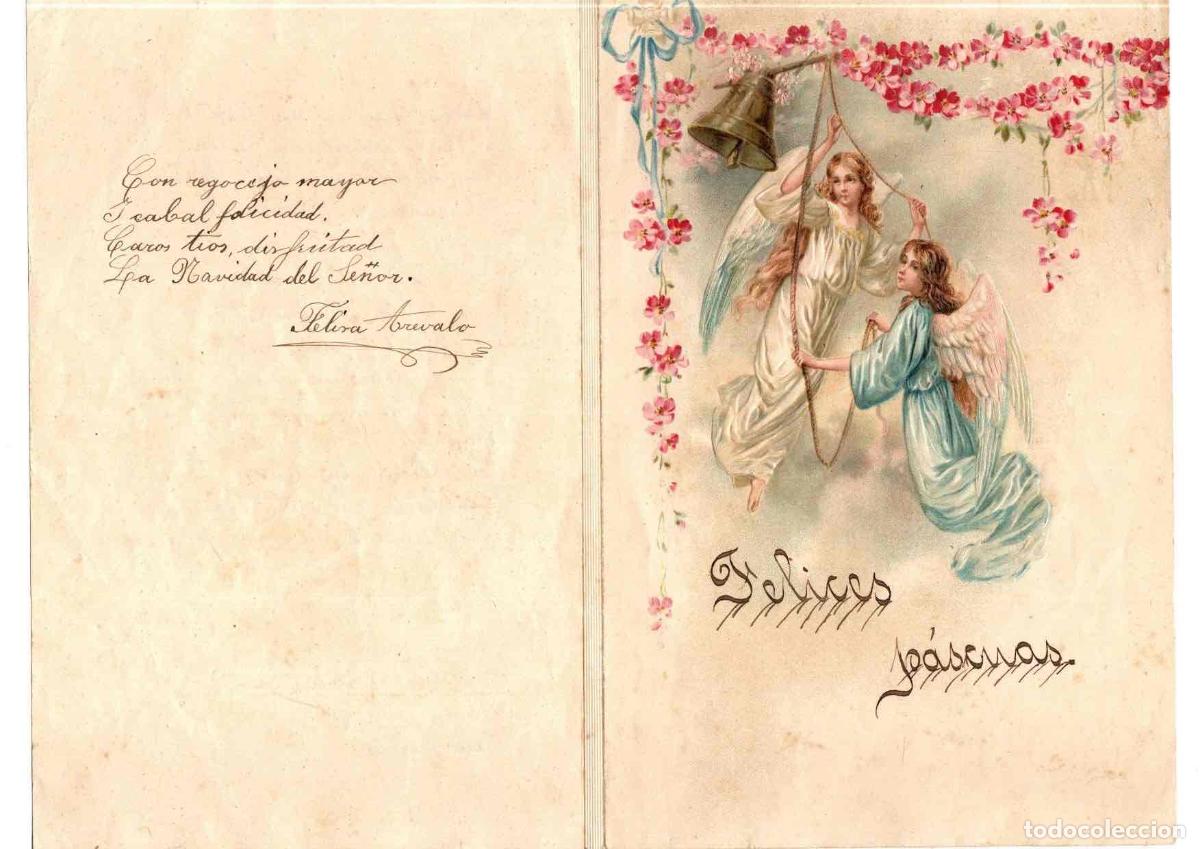 Con regocijo mayor
Y cabal felicidad.
Caros tios, disfrutad
La Navidad del Señor.
Felisa Arevalo
Felices
páscuas.
todocoleccion